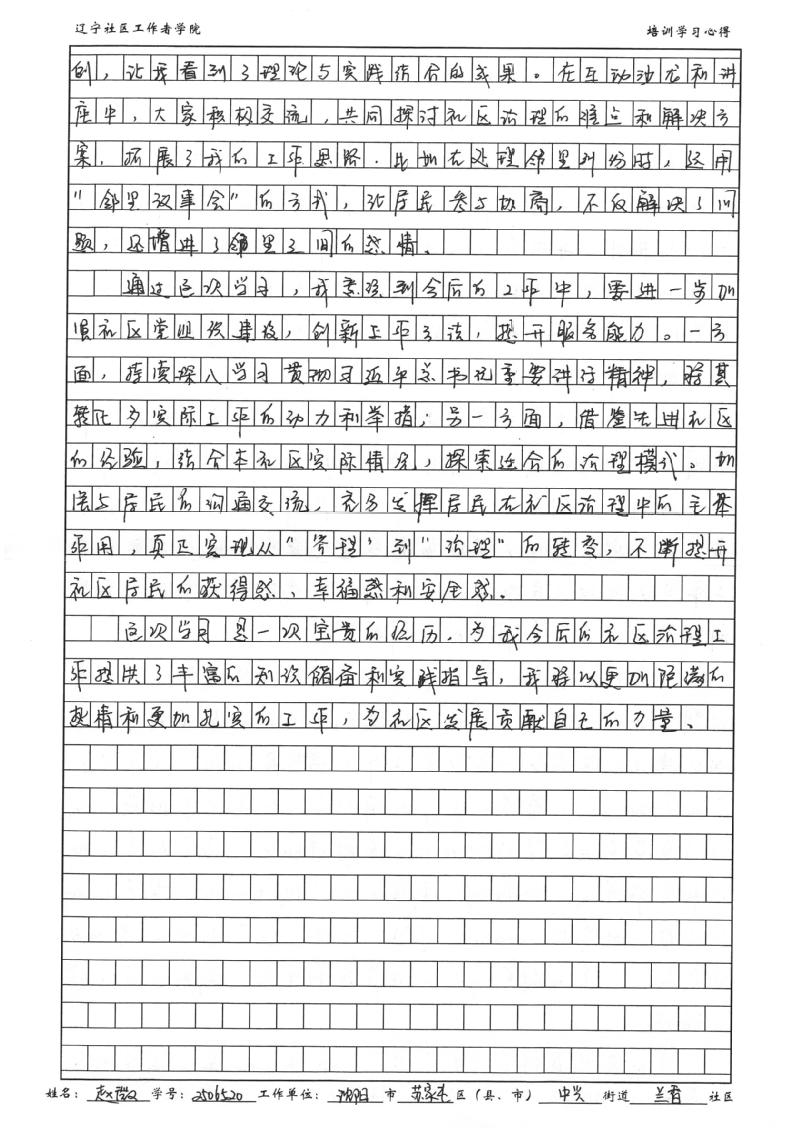 辽宁社区工作者学院 培训学习心得
例，让我看到了理论与实践结合的成果。在互动沙龙和讲
座中，大家积极交流，共同探讨社区治理的难点和解决方
案，拓展了我的工作思路．比如在处理邻里纠纷时，运用
“邻里议事会”的方式，让居民参与协商，不仅解决了问
题，还增进了邻里之间的感情。
通过这次学习，我意识到今后的工作中，要进一步加
强社区党组织建设，创新工作方法，提升服务能力。一方
面，持续深入学习贯彻习近平总书记重要讲话精神，将其
转化为实际工作的动力和举措；另一方面，借鉴先进社区
的经验，结合本社区实际情况，探索适合的治理模式。加
强与居民的沟通交流，充分发挥居民在社区治理中的主体
作用，真正实现从“管理”到“治理”的转变，不断提升
社区居民的获得感、幸福感和安全感。
这次学习是一次宝贵的经历，为我今后的社区治理工
作提供了丰富的知识储备和实践指导，我将以更加饱满的
热情和更加扎实的工作，为社区发展贡献自己的力量。
姓名：赵 学号：2506520 工作单位：沈阳 市 苏家屯 区（县、市） 中兴 街道 兰香 社区